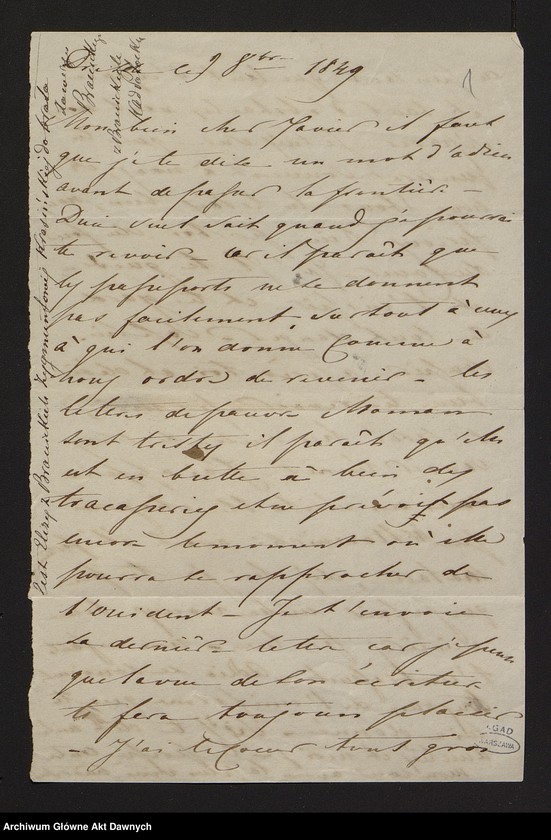 le 9 8bre 1849
1
Mon bien cher Xavier il faut
que je te dise un mot d'adieu
avant de passer la frontière —
Dieu seul sait quand je pourrai
te revoir — car il paraît que
les passeports ne se donnent
pas facilement, surtout à ceux
à qui l'on donne comme à
nous ordre de revenir — les
lettres de pauvre Maman
sont tristes il paraît qu'elle
est en butte à bien des
tracasseries et ne prévoit pas
encore le moment où elle
pourra se rapprocher de
l'Occident — Je t'envoie
sa dernière lettre car je pense
que la vue de son écriture
te fera toujours plaisir
— J'ai le cœur tout gros
List Elizy z Branickich Zygmuntowej Krasińskiej do brata
Branickiego
z Branickich
AGAD
WARSZAWA
Archiwum Główne Akt Dawnych